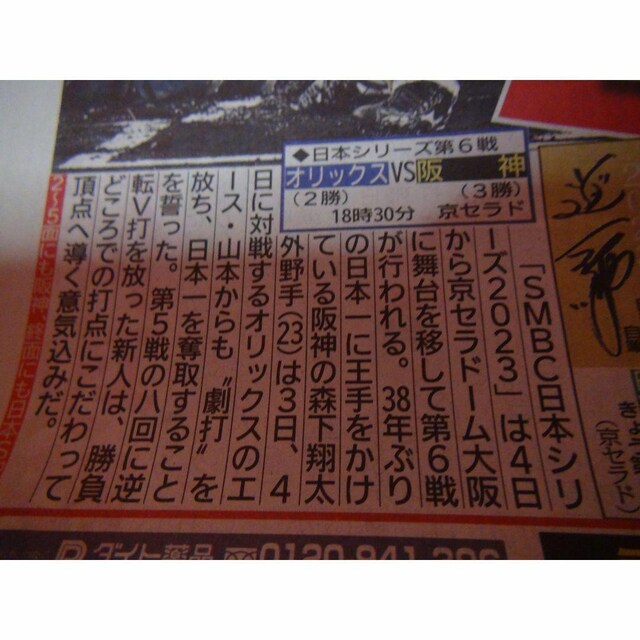 ◆日本シリーズ第6戦
オリックスVS阪神
(2勝)(3勝)
18時30分 京セラド
「SMBC日本シリ
ーズ2023」は4日
から京セラドーム大阪
に舞台を移して第6戦
が行われる。38年ぶり
の日本一に王手をかけ
ている阪神の森下翔太
外野手(23)は3日、4
日に対戦するオリックスのエ
ース・山本からも〝劇打〟を
放ち、日本一を奪取すること
を誓った。第5戦の八回に逆
転V打を放った新人は、勝負
どころでの打点にこだわって
頂点へ導く意気込みだ。
2〜5面にも阪神、終面にも日本
(京セラド)
ダイト薬品 0120-941-396